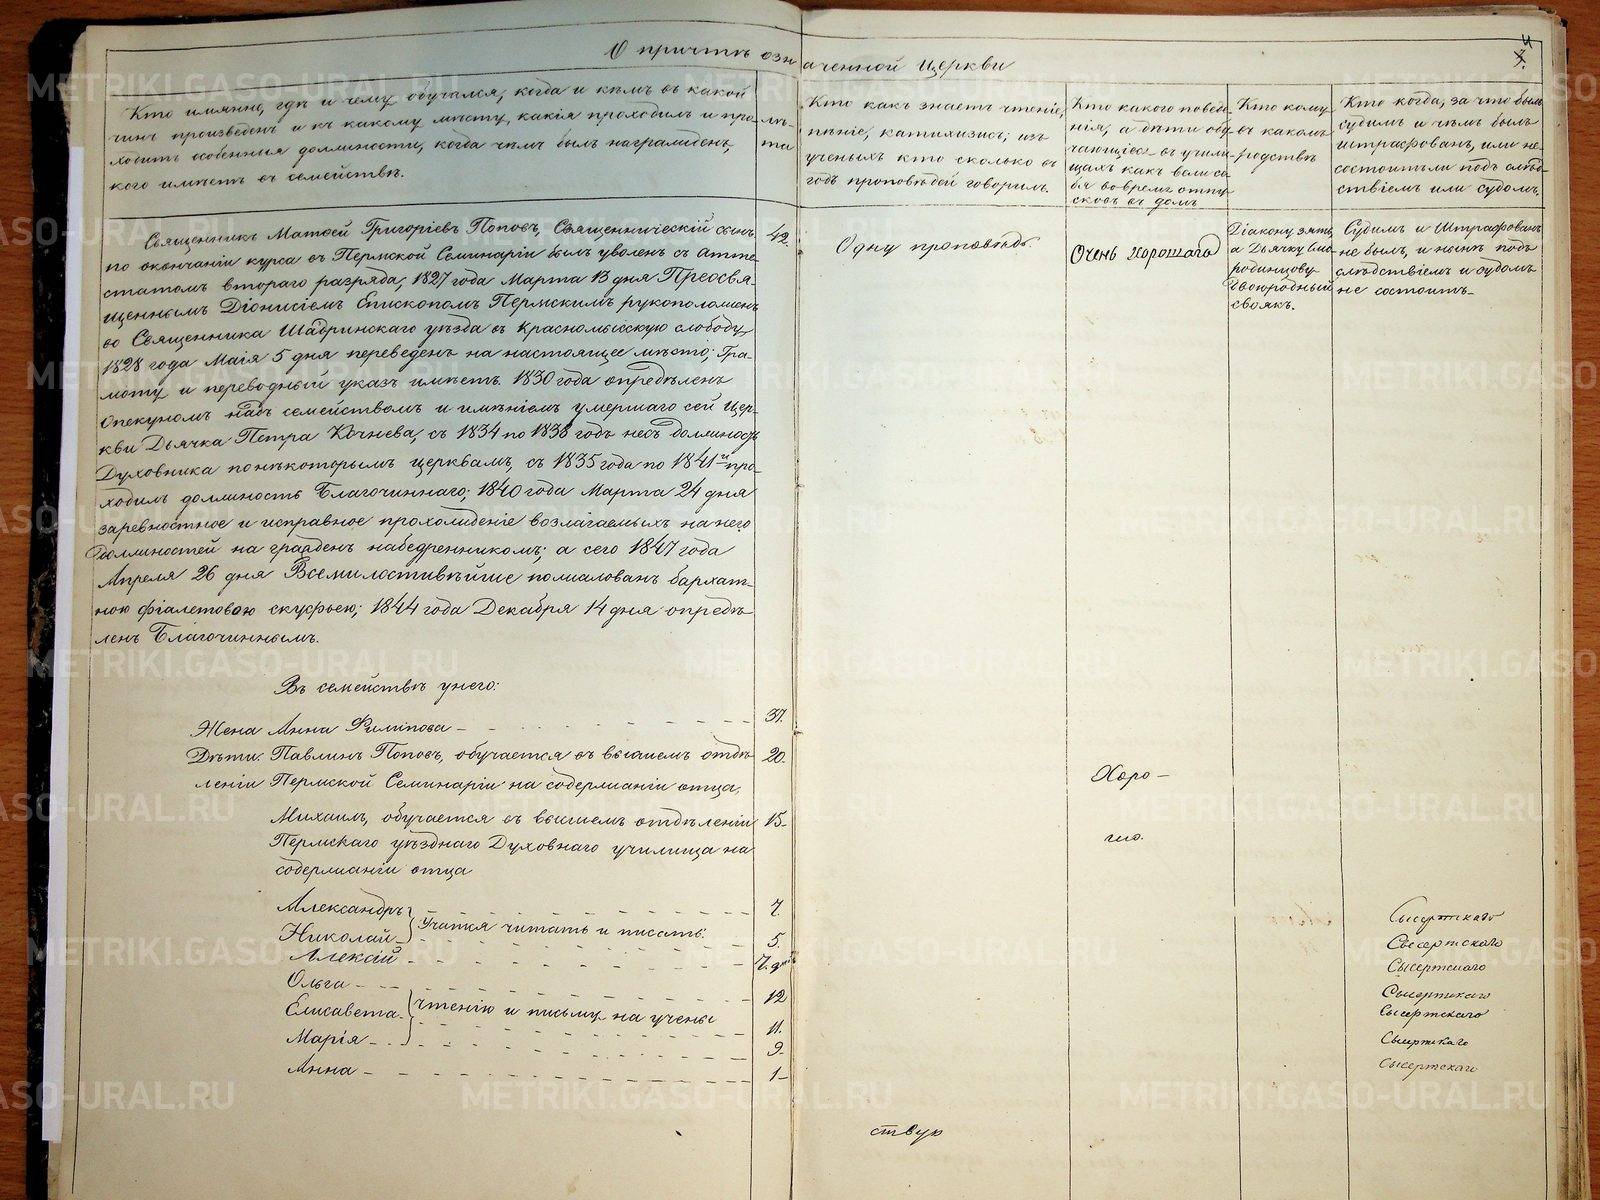 О причтѣ означенной Церкви
4
7.
Кто имянно, гдѣ и чему обучался, когда и кѣмъ въ какой
чинъ произведенъ и къ какому мѣсту, какія проходилъ и про-
ходитъ особенныя должности, когда чѣмъ былъ награжденъ,
кого имѣетъ въ семействѣ.
лѣ-
та
Кто какъ знаетъ чтеніе,
пѣніе, катихизисъ; изъ
ученыхъ кто сколько въ
годъ проповѣдей говорилъ.
Кто какого поведе-
нія, а дѣти обу-
чающіеся въ учили-
щахъ какъ вели се-
бя вовремя отпу-
сковъ въ домъ
Кто кому
въ какомъ
родствѣ
Кто когда, за что былъ
судимъ и чѣмъ былъ
штрафованъ, или не
состоитъ ли подъ слѣд-
ствіемъ или судомъ.
Священникъ Матѳей Григоріевъ Поповъ, Священническій сынъ.
по окончаніи курса въ Пермской Семинаріи былъ уволенъ съ атте-
статомъ втораго разряда, 1827 года Марта 13 дня Преосвя-
щеннымъ Діонисіемъ Епископомъ Пермскимъ рукоположенъ
во Священника Шадринскаго уѣзда въ Красномысскую слободу,
1828 года Маія 5 дня переведенъ на настоящее мѣсто; Гра-
моту и переводный указъ имѣетъ. 1830 года опредѣленъ
Опекуномъ надъ семействомъ и имѣніемъ умершаго сей Цер-
кви Дьячка Петра Кочнева, съ 1834 по 1838 годъ несъ должность
Духовника понѣкоторымъ церквамъ, съ 1835 года по 1841й про-
ходилъ должность Благочиннаго; 1840 года Марта 24 дня
заревностное и исправное прохожденіе возлагаемыхъ на него
должностей на гражденъ набедренникомъ; а сего 1847 года
Апреля 26 дня Всемилостивѣйше пожалованъ бархат-
ною фіалетовою скуфьею; 1844 года Декабря 14 дня опредѣ
ленъ Благочиннымъ.
42.
Одну проповѣдь
Очень хорошаго
Діакону зять,
а Дьячку Смо-
родинцову
двоюродный
своякъ.
Судимъ и Штрафованъ
не былъ, и нынѣ подъ
слѣдствіемъ и судомъ
не состоитъ
Въ семействѣ унего:
Жена Анна Филипова 37.
Дѣти: Павлинъ Поповъ, обучается въ высшемъ отдѣ- 20.
леніи Пермской Семинаріи на содержаніи отца,
Хоро-
Михаилъ, обучается въ высшемъ отдѣленіи 15
Пермскаго уѣзднаго Духовнаго училища на
шо.
содержаніи отца
Александръ 7. Сысертскаго
Учатся читать и писать.
Николай 5. Сысертскаго
Алексѣй 7. дней Сысертскаго
Ольга 12 Сысертскаго
Елисавета 11. Сысертскаго
Чтенію и письму на учены
Марія 9 Сысертскаго
Анна 1 Сысертскаго
ствую
METRIKI.GASO-URAL.RU